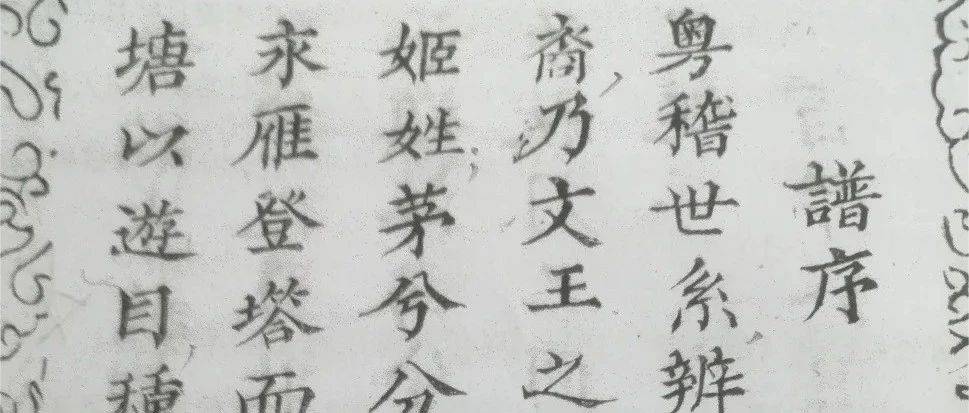 譜序
粤稽世糸辨
裔乃文王之
姬姓茅兮分
永雁登塔而
塘以遊目種